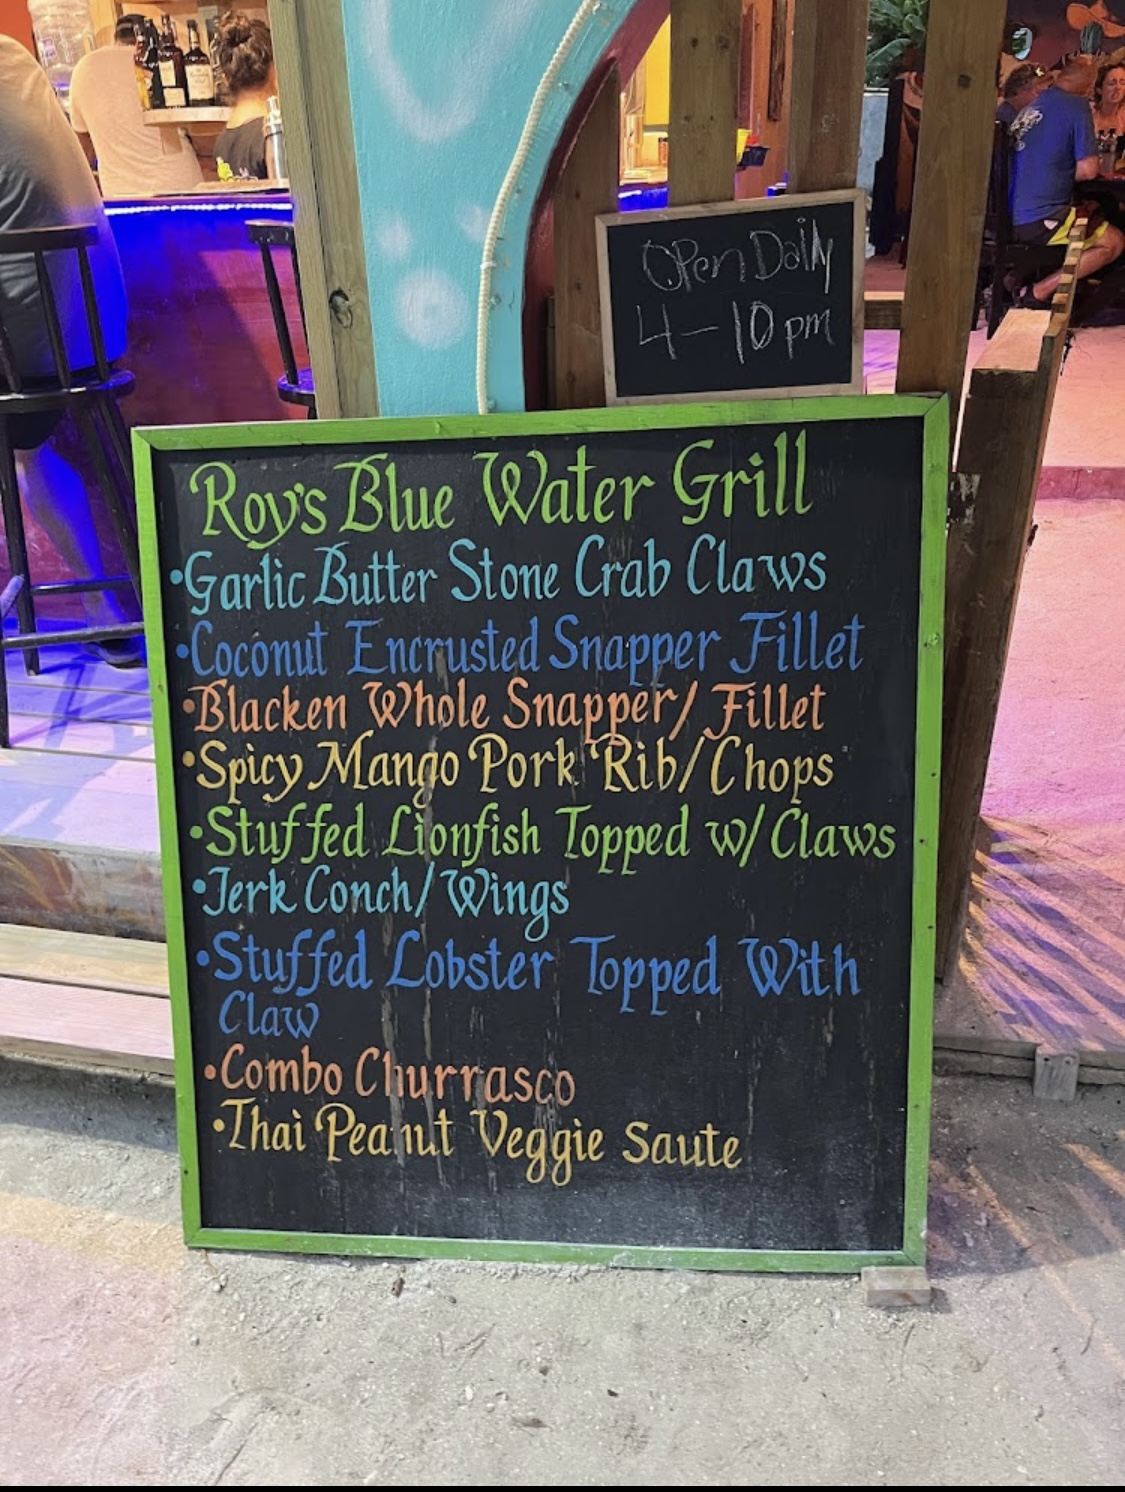 OPen Daily
4-10pm
Roy's Blue Water Grill
•Garlic Butter Stone Crab Claws
•Coconut Encrusted Snapper Fillet
•Blacken Whole Snapper/Fillet
•Spicy Mango Pork Rib/Chops
•Stuffed Lionfish Topped w/Claws
•Jerk Conch/Wings
•Stuffed Lobster Topped With
Claw
•Combo Churrasco
•Thai Peanut Veggie Saute